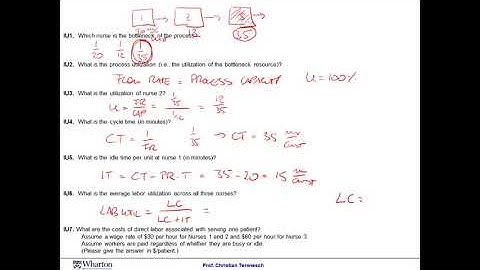 1 2 3
20 12 35
IU1. Which nurse is the bottleneck of the process?
1/20 1/12 1/35
IU2. What is the process utilization (i.e., the utilization of the bottleneck resource)?
FLOW RATE = PROCESS CAPACITY U = 100%
IU3. What is the utilization of nurse 2?
U = FR/CAP = 1/35 / 1/12 = 12/35
IU4. What is the cycle time (in minutes)?
CT = 1/FR 1/35 → CT = 35 min/cust
IU5. What is the idle time per unit at nurse 1 (in minutes)?
IT = CT - PR.T = 35 - 20 = 15 min/cust
IU6. What is the average labor utilization across all three nurses?
LAB UTIL = LC/LC+IT = LC =
IU7. What are the costs of direct labor associated with serving one patient?
Assume a wage rate of $30 per hour for Nurses 1 and 2 and $60 per hour for Nurse 3
Assume workers are paid regardless of whether they are busy or idle.
(Please give the answer in $/patient.)
Wharton Prof. Christian Terwiesch